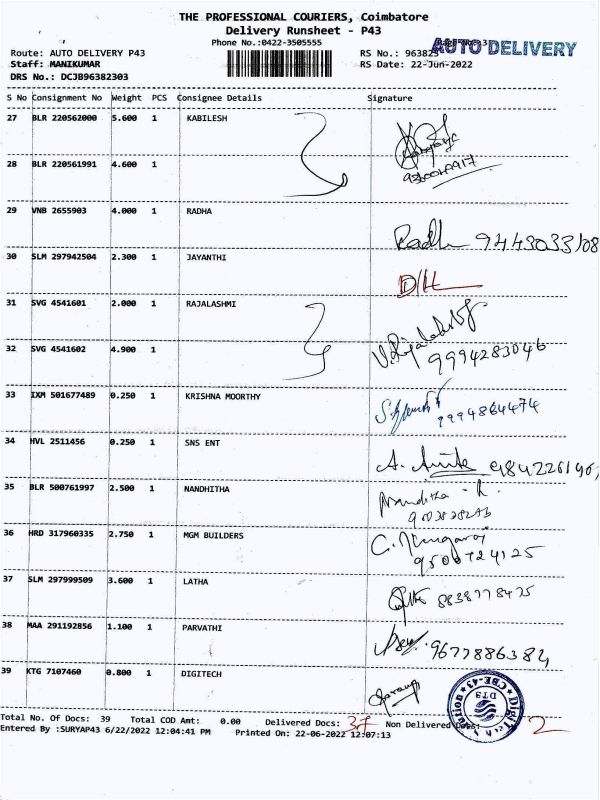 THE PROFESSIONAL COURIERS, Coimbatore
Delivery Runsheet - P43
Phone No.:0422-3505555
Route: AUTO DELIVERY P43
RS No.: 963823
AUTO DELIVERY
Staff: MANIKUMAR
RS Date: 22-Jun-2022
DRS No.: DCJB96382303
S No Consignment No Weight PCS Consignee Details Signature
27 BLR 220562000 5.600 1 KABILESH
28 BLR 220561991 4.600 1
29 VNB 2655903 4.000 1 RADHA Radh 9443033108
30 SLM 297942504 2.300 1 JAYANTHI D/H
31 SVG 4541601 2.000 1 RAJALASHMI
32 SVG 4541602 4.900 1 9994283046
33 IXM 501677489 0.250 1 KRISHNA MOORTHY 9994864474
34 HVL 2511456 0.250 1 SNS ENT A.
35 BLR 500761997 2.500 1 NANDHITHA Nanditha
36 HRD 317960335 2.750 1 MGM BUILDERS 9500724125
37 SLM 297999509 3.600 1 LATHA 8838778475
38 MAA 291192856 1.100 1 PARVATHI 9677886384
39 KTG 7107460 0.800 1 DIGITECH
DigiTech Solution
CBE-43
DTS
Total No. Of Docs: 39 Total COD Amt: 0.00 Delivered Docs: 37 Non Delivered Docs: 2
Entered By :SURYAP43 6/22/2022 12:04:41 PM Printed On: 22-06-2022 12:07:13